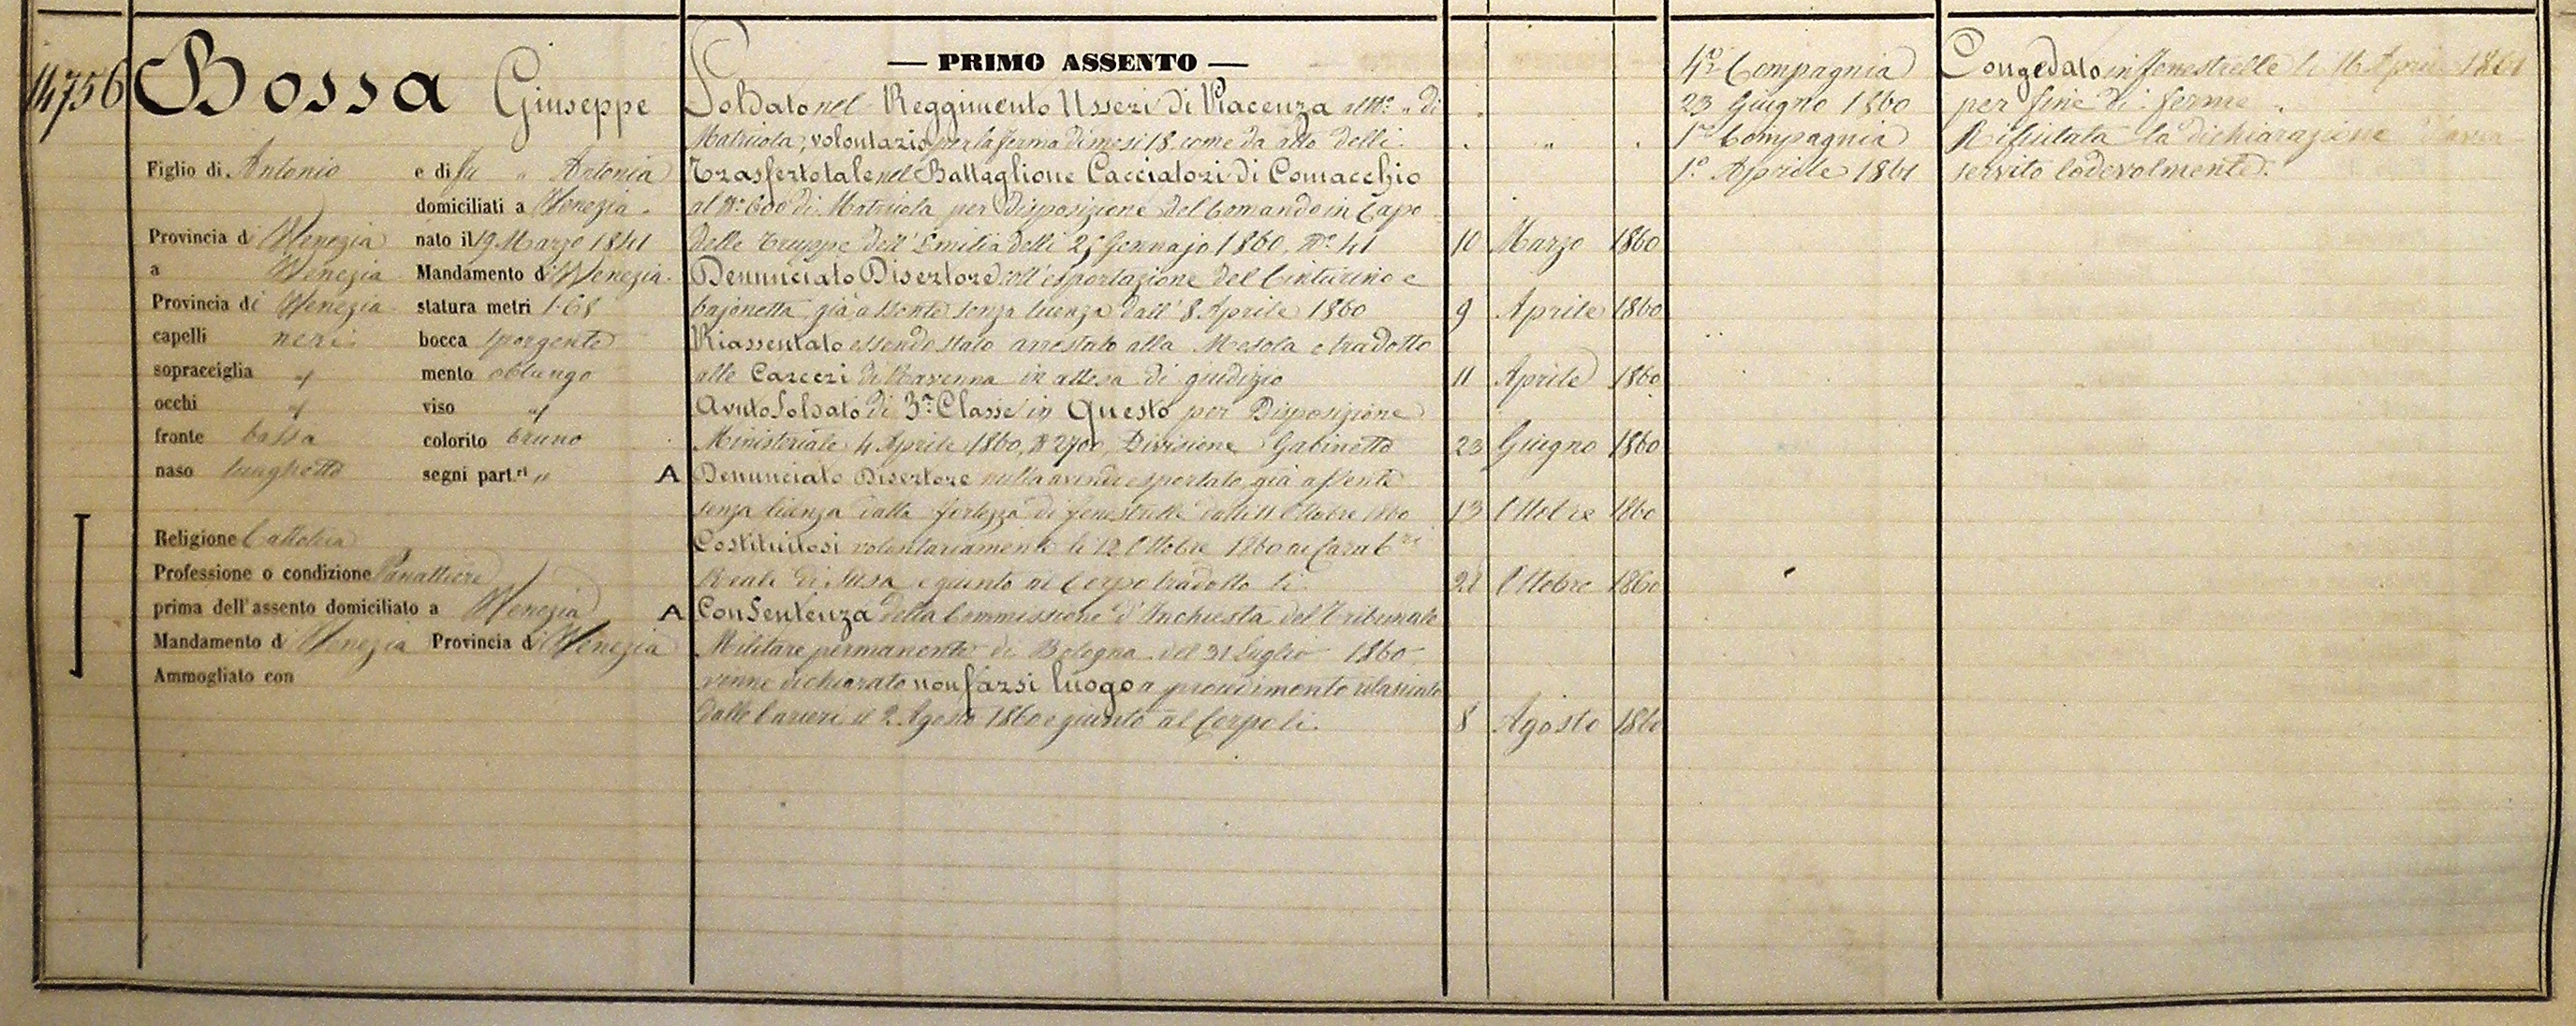 14756
Bossa Giuseppe
Figlio di Antonio e di fu " Antonia
domiciliati a Venezia
Provincia di Venezia nato il 19 Marzo 1841
a Venezia Mandamento di Venezia
Provincia di Venezia statura metri 1.68
capelli neri bocca sporgente
sopracciglia " mento oblungo
occhi " viso "
fronte bassa colorito bruno
naso lunghetto segni part.ri "
Religione Cattolica
Professione o condizione Panattiere
prima dell'assento domiciliato a Venezia
Mandamento di Venezia Provincia di Venezia
Ammogliato con
— PRIMO ASSENTO —
Soldato nel Reggimento Usseri di Piacenza al N.o " di
Matricola; volontario per la ferma di mesi 18 come da atto delli
Trasferto tale nel Battaglione Cacciatori di Comacchio
al N.o 600 di Matricola per disposizione del Comando in Capo
delle Truppe dell'Emilia delli 25 Gennajo 1860 N.o 41 10 Marzo 1860
Denunciato Disertore coll'esportazione del Cinturino e
bajonetta, già assente senza licenza dall'8 Aprile 1860 9 Aprile 1860
Riassentato essendo stato arrestato alla Mesola e tradotto
alle Carceri di Ravenna in attesa di giudizio 11 Aprile 1860
Avuto Soldato di 3.a Classe in Questo per Disposizione
Ministeriale 4 Aprile 1860, N 2700, Divisione Gabinetto 23 Giugno 1860
A Denunciato Disertore nulla avendo esportato già assente
senza licenza dalla fortezza di Fenestrelle dalli 11 Ottobre 1860 13 Ottobre 1860
Costituitosi volontariamente li 12 Ottobre 1860 ai Carab.ri
Reali di Susa e giunto al Corpo tradotto li 21 Ottobre 1860
A Con Sentenza della Commissione d'Inchiesta del Tribunale
Militare permanente di Bologna del 31 Luglio 1860
venne dichiarato non farsi luogo a procedimento rilasciato
dalle Carceri il 2 Agosto 1860 e giunto al Corpo li. 8 Agosto 1860
4.a Compagnia
23 Giugno 1860
1.a Compagnia
1.o Aprile 1861
Congedato in Fenestrelle li 16 Aprile 1861
per fine di ferma
Rifiutata la dichiarazione d'aver
servito lodevolmente.